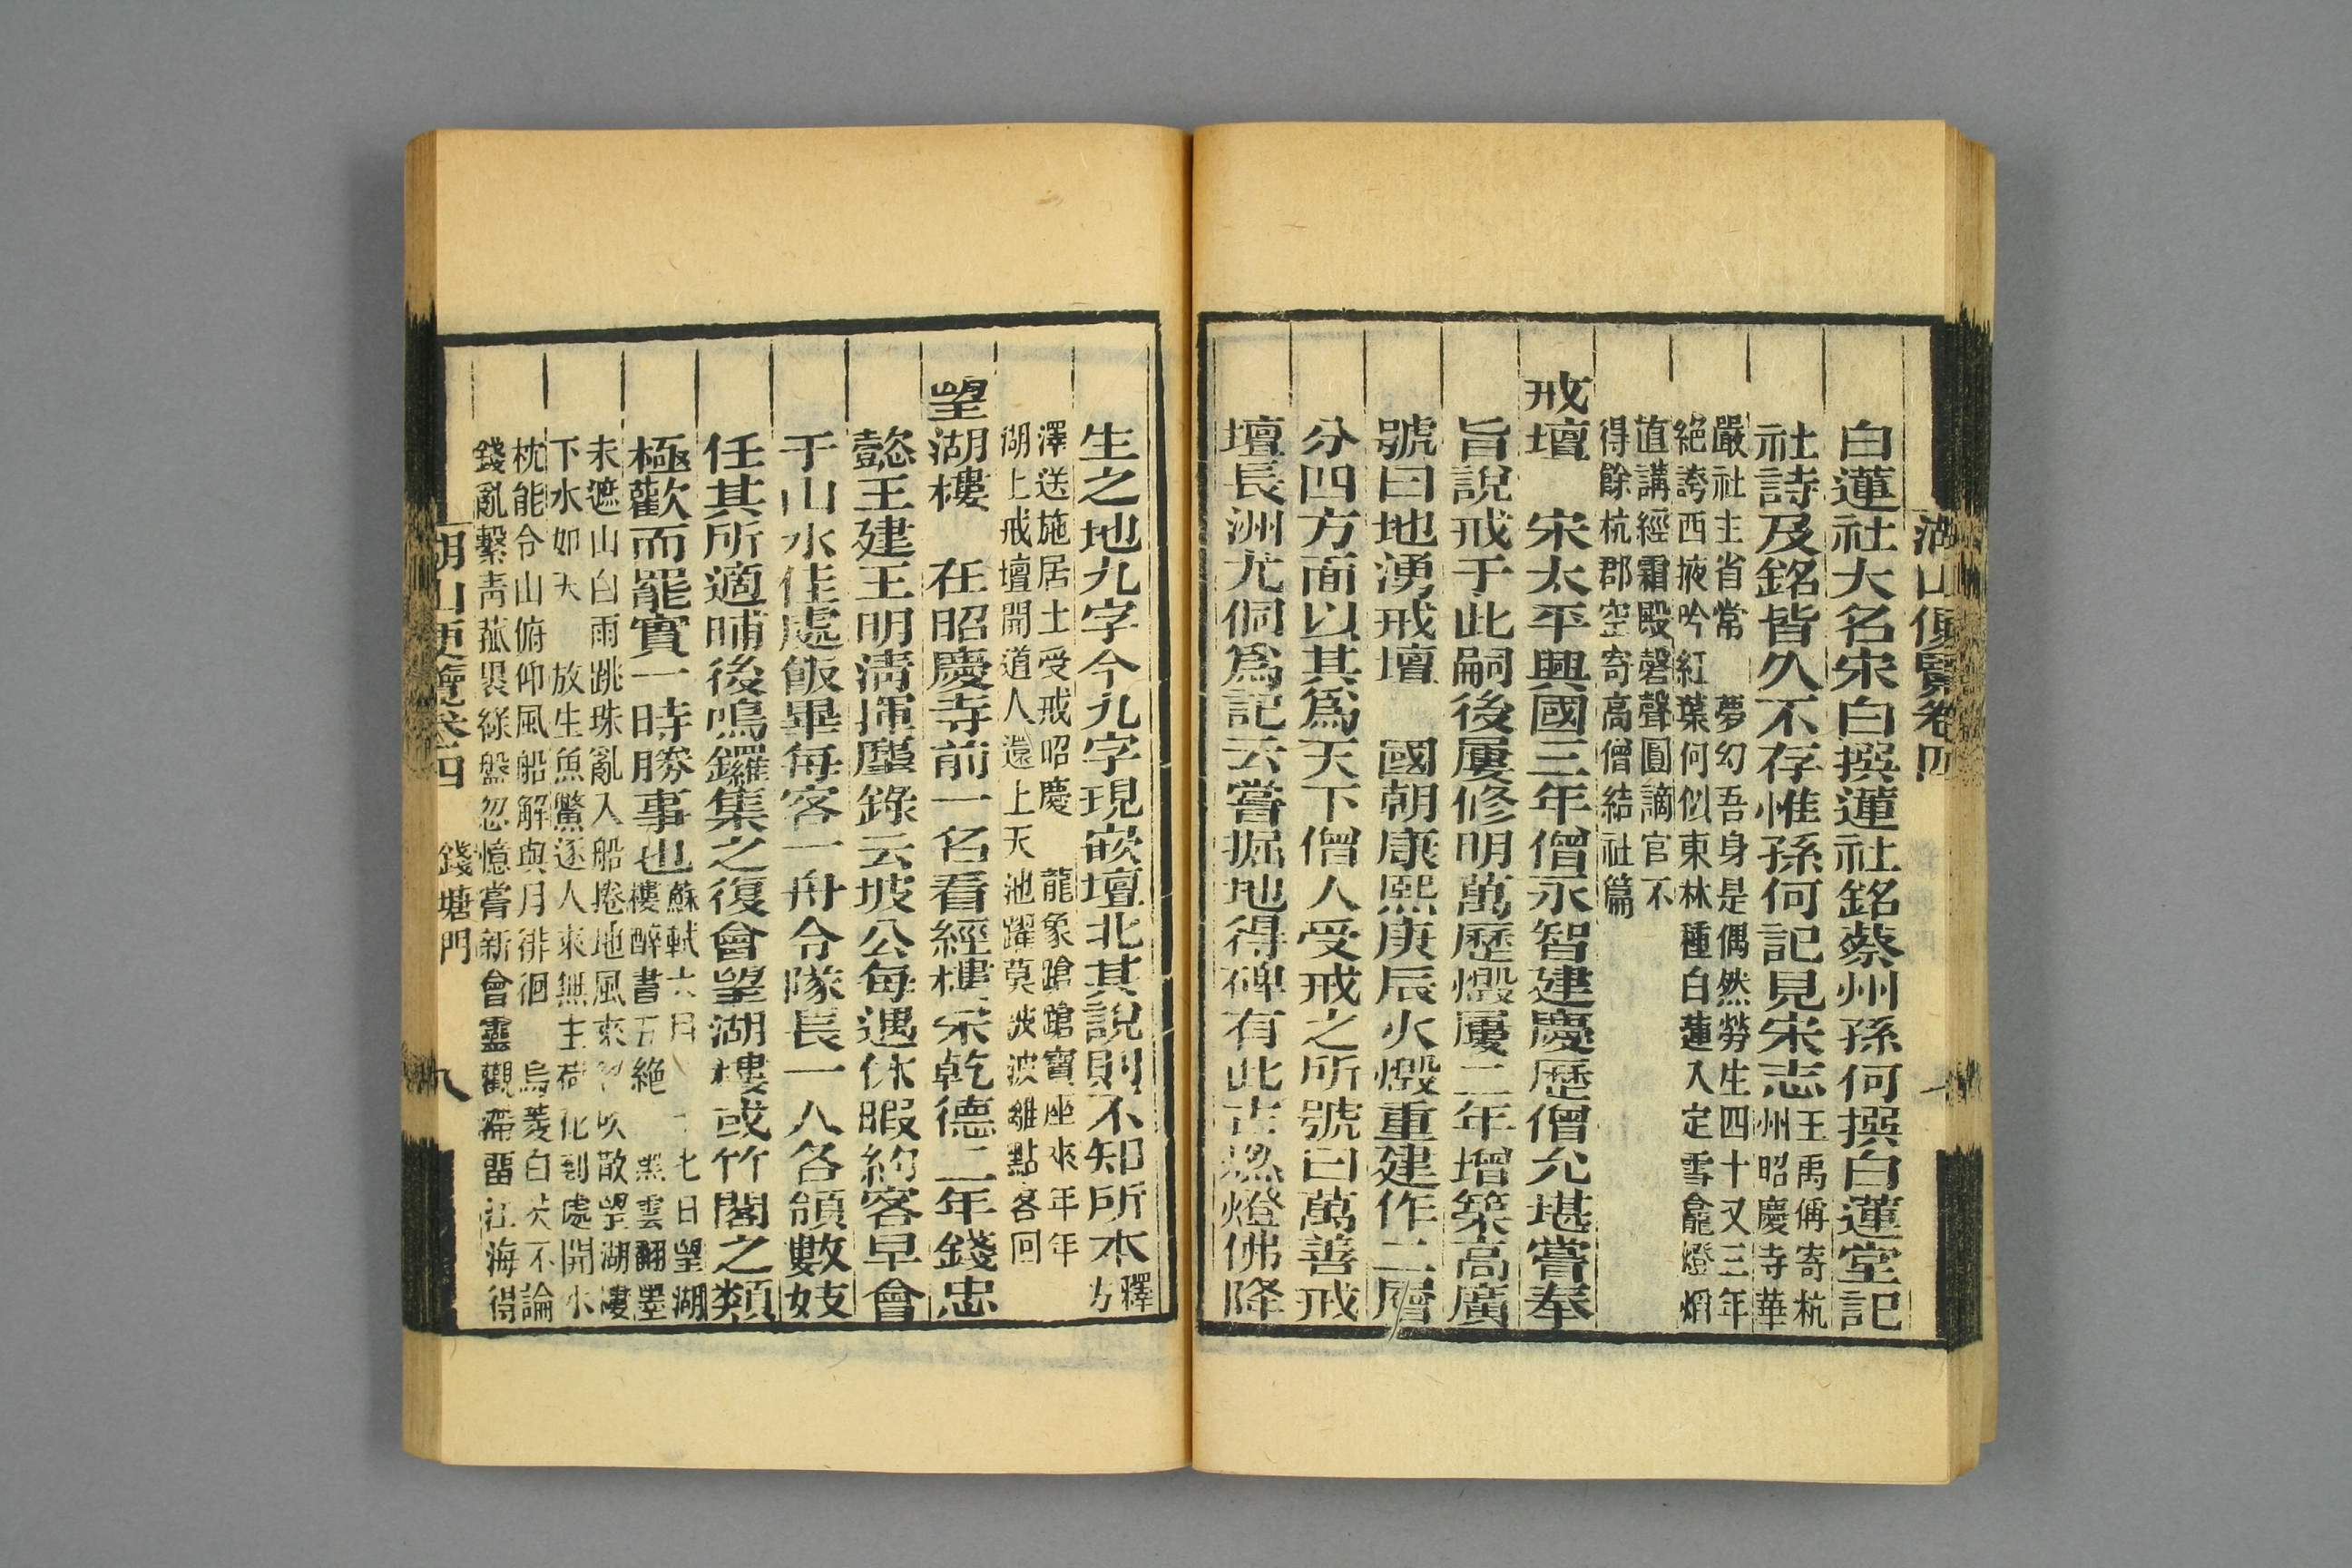 湖山便覽卷四
白蓮社大名宋白撰蓮社銘蔡州孫何撰白蓮堂記
社詩及銘皆久不存惟孫何記見宋志
王禹偁寄杭
州昭慶寺華
嚴社主省常 夢幻吾身是偶然勞生四十又三年
絕誇西掖吟紅葉何似東林種白蓮入定雪龕燈焰
直講經霜殿磬聲圓謫官不
得餘杭郡空寄高僧結社篇
戒壇 宋太平興國三年僧永智建慶歷僧允堪嘗奉
旨說戒于此嗣後屢修明萬歷燬屢二年增築高廣
號曰地湧戒壇 國朝康熙庚辰火燬重建作二層
分四方面以其爲天下僧人受戒之所號曰萬善戒
壇長洲尤侗爲記云嘗掘地得碑有此古燃燈佛降
生之地九字今九字現嵌壇北其說則不知所本
釋
方
澤送施居士受戒昭慶 龍象蹌蹌寶座來年年
湖上戒壇開道人還上天池躍莫波波離點客回
望湖樓 在昭慶寺前一名看經樓宋乾德二年錢忠
懿王建王明淸揮麈錄云坡公每遇休暇約客早會
于山水佳處飯畢每客一舟令隊長一人各領數妓
任其所適晡後鳴鑼集之復會望湖樓或竹閣之類
極歡而罷實一時勝事也
蘇軾六月二十七日望湖
樓醉書五絕 黑雲翻墨
未遮山白雨跳珠亂入船捲地風來忽吹散望湖樓
下水如天 放生魚驚逐人來無主荷花到處開水
枕能令山俯仰風船解與月徘徊 烏菱白芡不論
錢亂繫靑菰裹綠盤忽憶嘗新會靈觀滯畱江海得
湖山便覽卷四 錢塘門 八